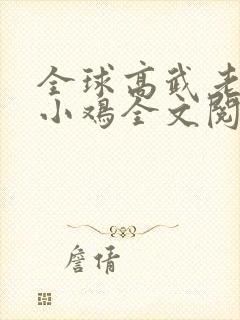 全球高武老
小鸡全文阅
詹倩